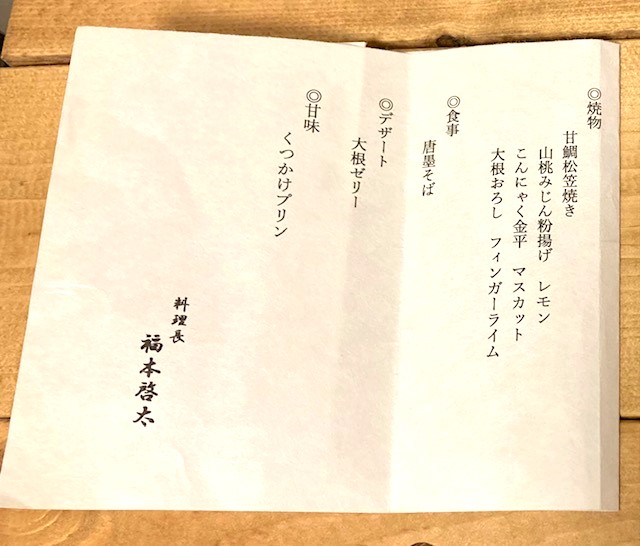 ◎焼物
甘鯛松笠焼き
山桃みじん粉揚げ　レモン
こんにゃく金平　マスカット
大根おろし　フィンガーライム
◎食事
唐墨そば
◎デザート
大根ゼリー
◎甘味
くつかけプリン
料理長
福本啓太